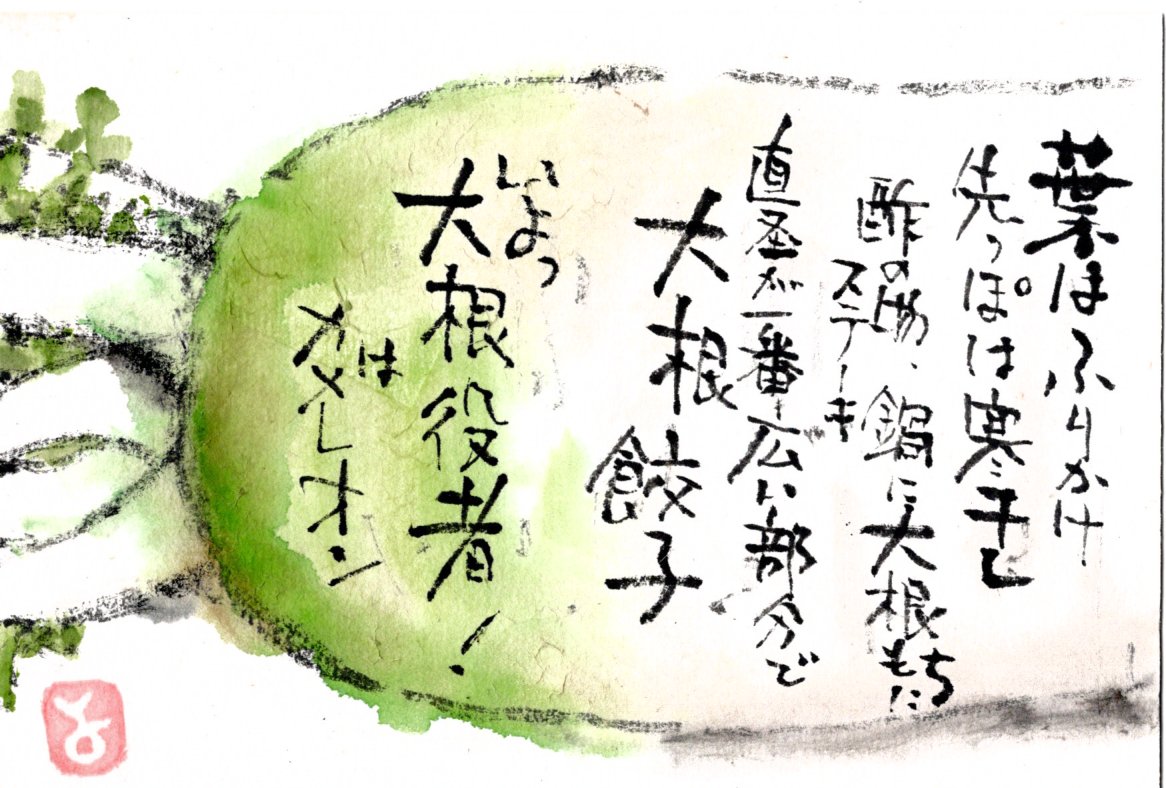 葉はふりかけ
先っぽは寒干し
酢の物、鍋に大根もちに
ステーキ
直径が一番広い部分で
大根餃子
いよっ
大根役者！
は
カメレオン